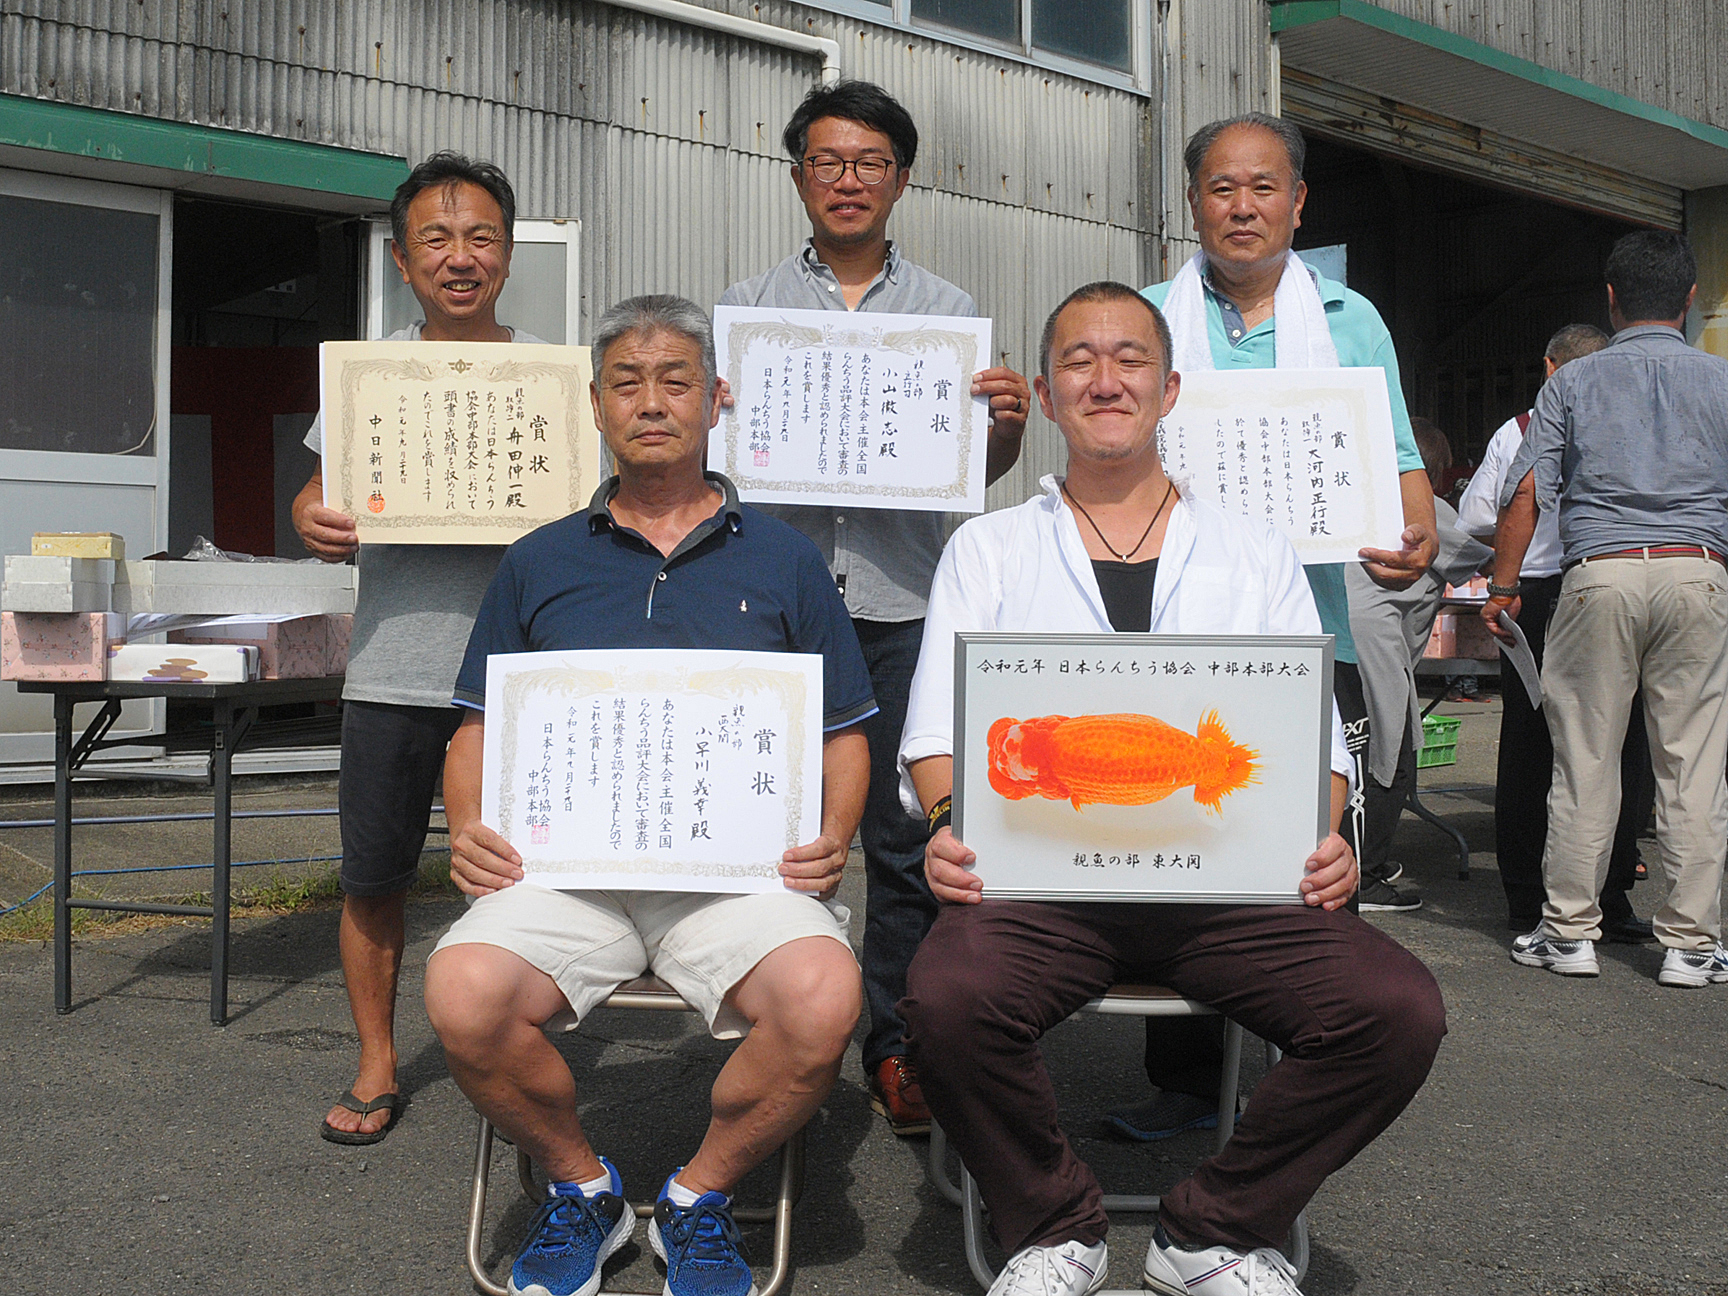 賞状
親魚の部
取締二
舟田伸一殿
あなたは日本らんちう
協会中部本部大会において
頭書の成績を収められ
たのでこれを賞します
令和元年九月二十九日
中日新聞社
賞状
親魚の部
立行司
小山徹志殿
あなたは本会主催全国
らんちう品評大会において審査の
結果優秀と認められましたので
これを賞します
令和元年九月二十九日
日本らんちう協会
中部本部
賞状
親魚の部
取締一
大河内正行殿
あなたは日本らんちう
協会中部本部大会に
於て優秀と認められ
したので茲に賞し
令和元年九
賞状
親魚の部
西大関
小早川義幸殿
あなたは本会主催全国
らんちう品評大会において審査の
結果優秀と認められましたので
これを賞します
令和元年九月二十九日
日本らんちう協会
中部本部
令和元年 日本らんちう協会 中部本部大会
親魚の部 東大関